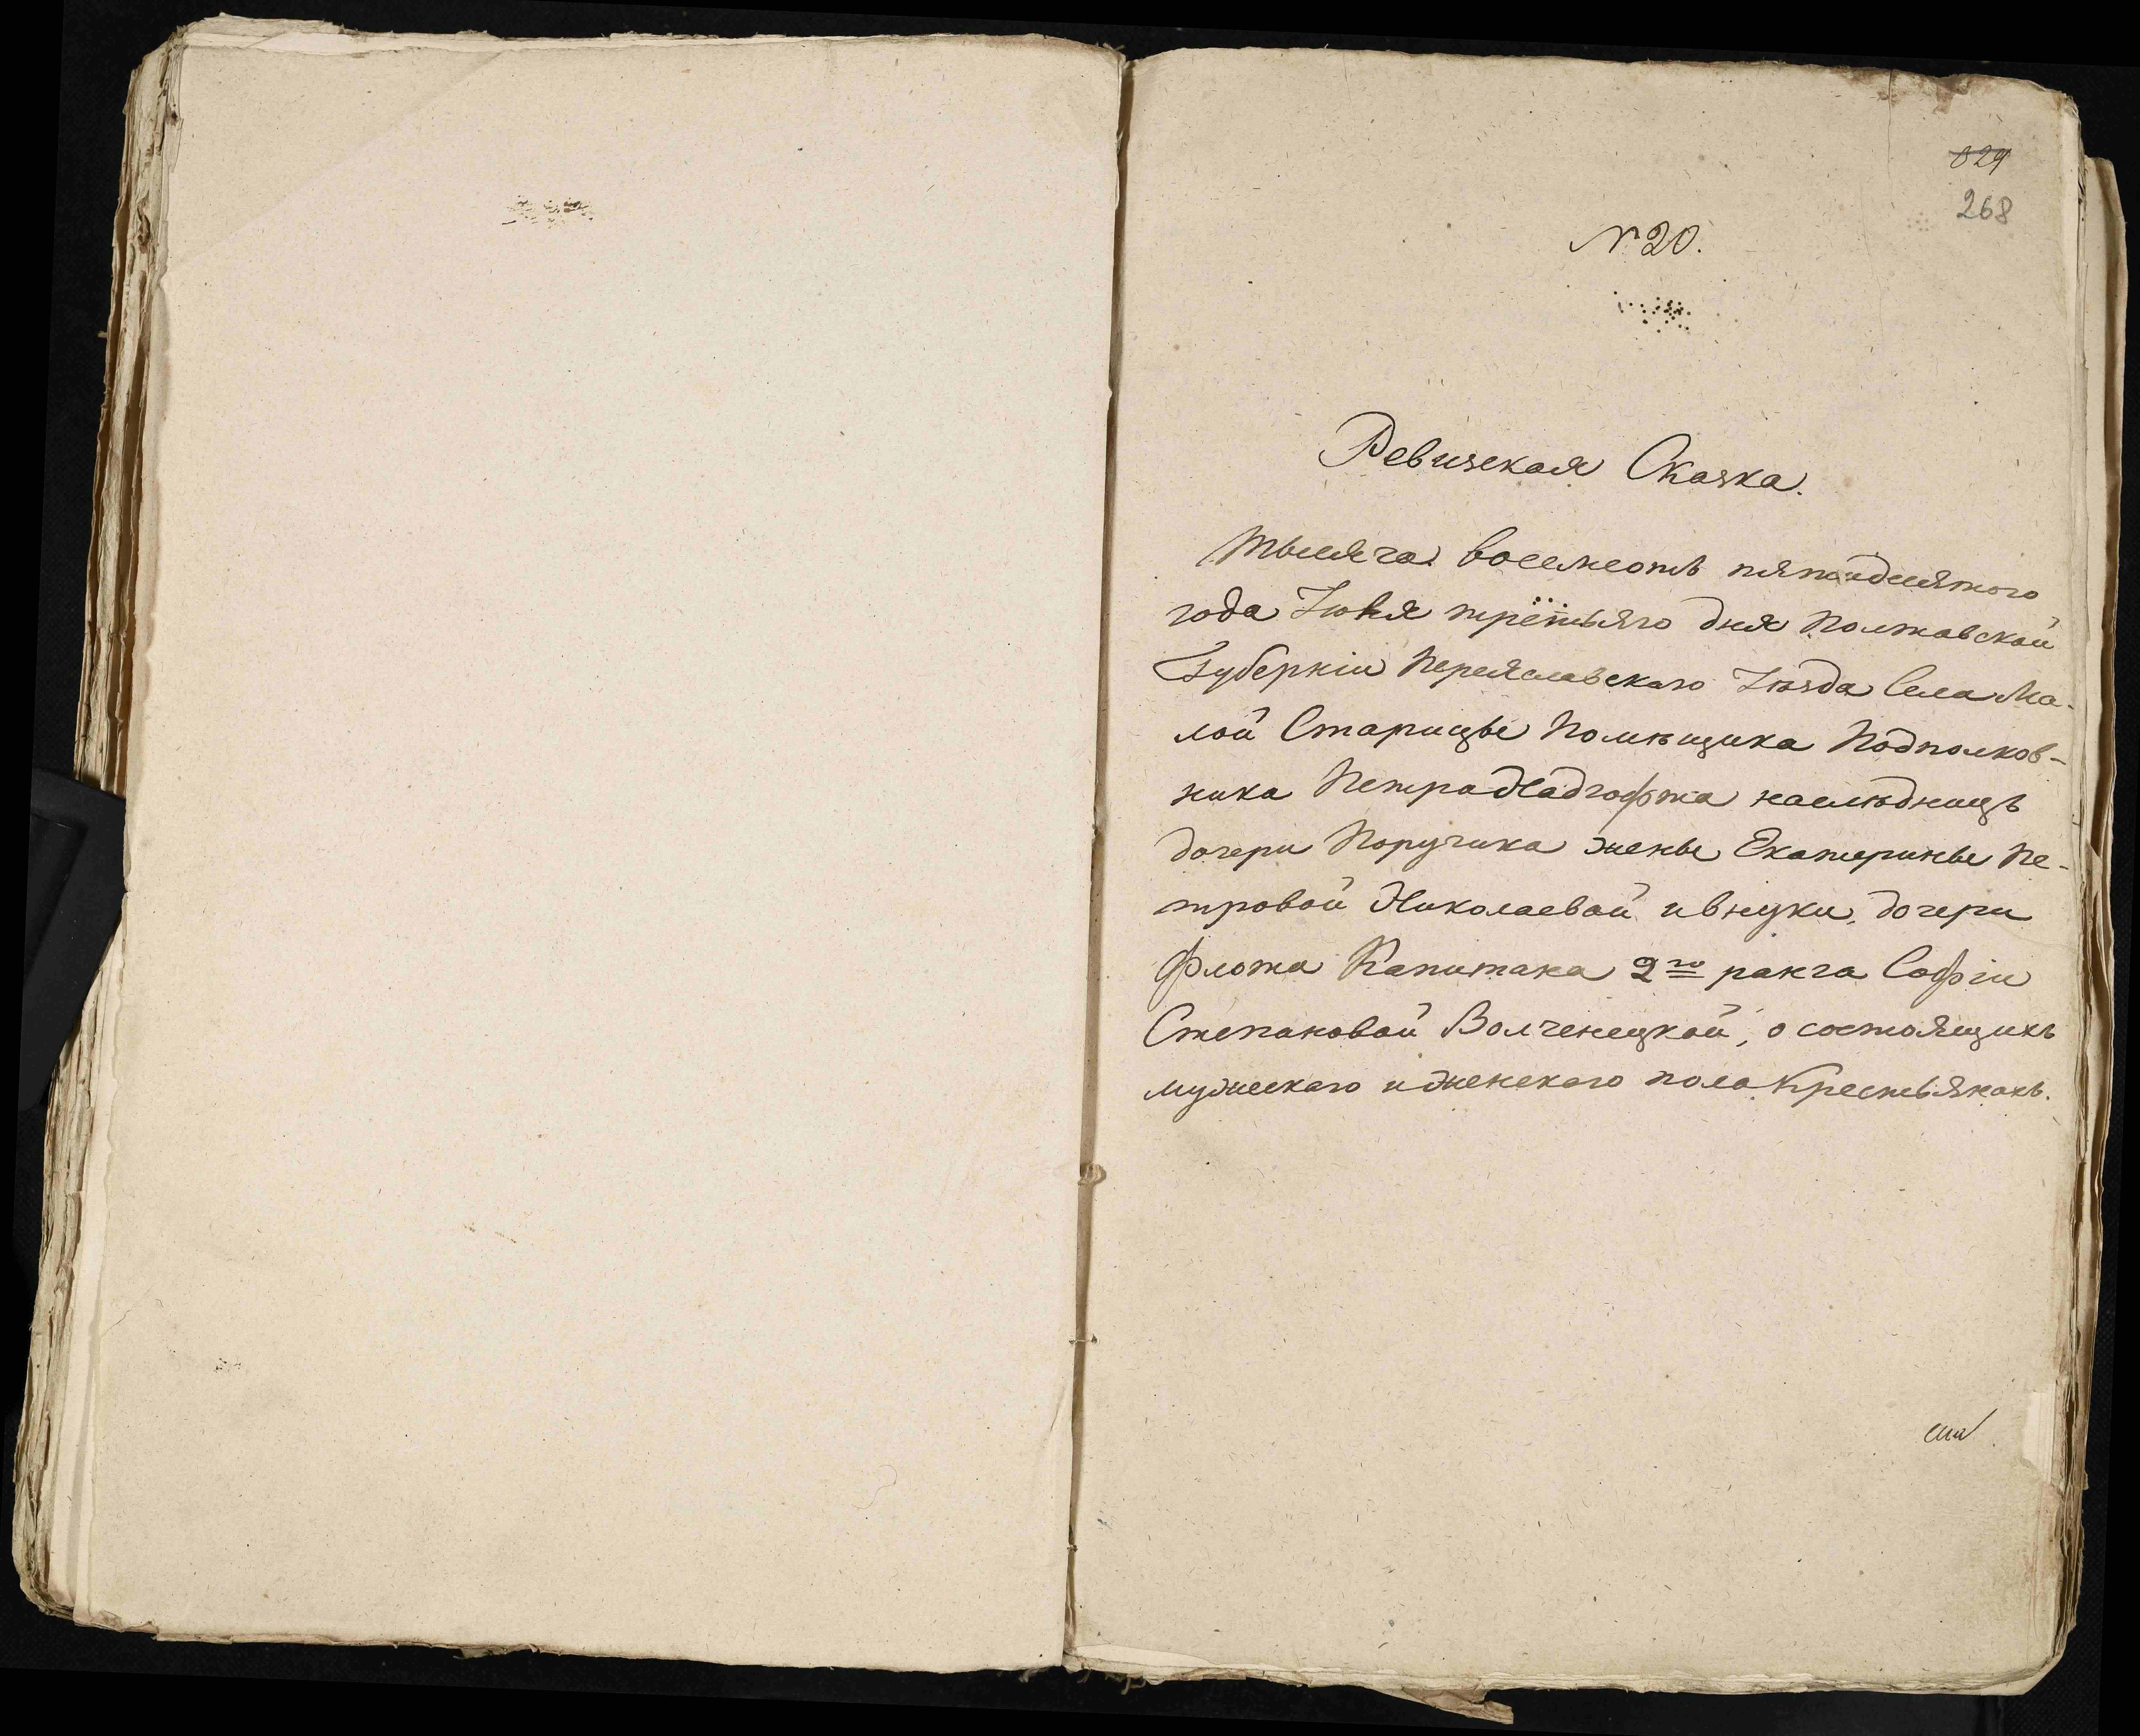 829
268
№ 20.
Ревизская Сказка.
Тысяча восемсотъ пятидесятого
года Іюня третьяго дня Полтавской
Губерніи Переяславскаго Уѣзда Села Ма-
лой Старицы Помѣщика Подполков-
ника Петра Надгофта наслѣдницъ
дочери Поручика жены Екатерины Пе-
тровой Николаевой и внуки, дочери
Флота Капитана 2го ранга Софіи
Степановой Волченецкой, о состоящихъ
мужескаго и женскаго пола Крестьянахъ.